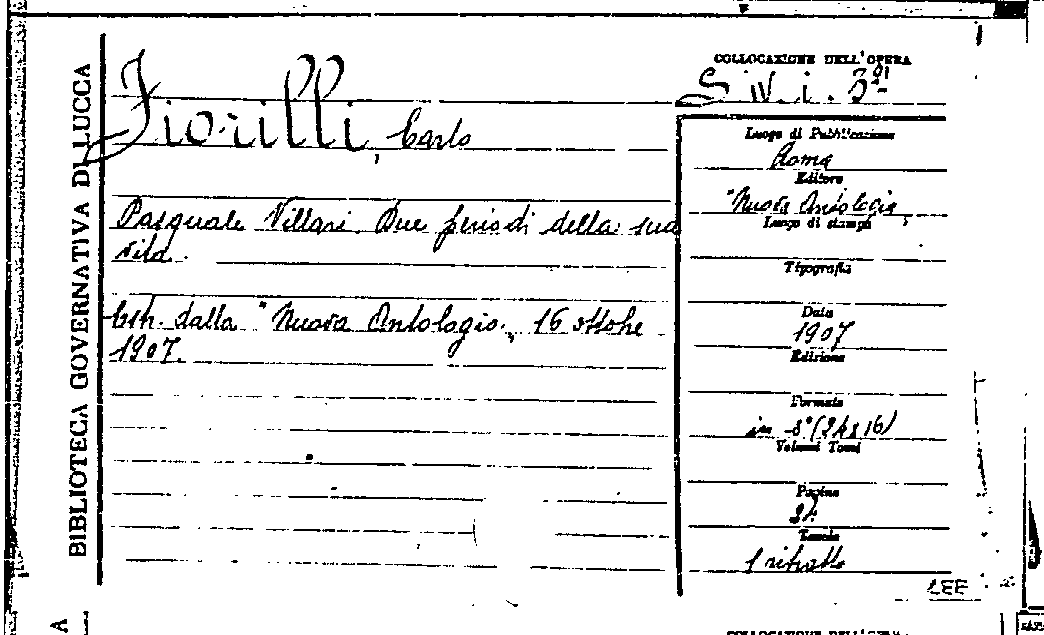 BIBLIOTECA GOVERNATIVA DI LUCCA
Fiorilli, Carlo
Pasquale Villari. Due periodi della sua
vita.
Estr. dalla "Nuova Antologia„ 16 ottobre
1907.
COLLOCAZIONE DELL'OPERA
Luogo di Pubblicazione
Roma
Editore
"Nuova Antologia„
Luogo di stampa
Tipografia
Data
1907
Edizione
Formato
in -8° (24 x 16)
Volumi Tomi
Pagine
Tavole
1 ritratto
LEE
COLLOCAZIONE DELL'OPERA